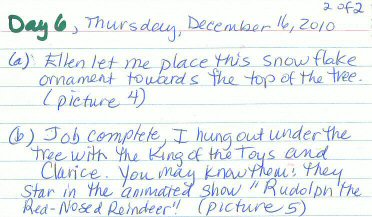 2 of 2
Day 6, Thursday, December 16, 2010
(a) Ellen let me place this snowflake
ornament towards the top of the tree.
(picture 4)
(b) Job complete, I hung out under the
tree with the King of the Toys and
Clarice. You may know them: they
star in the animated show "Rudolph the
Red-Nosed Reindeer"! (picture 5)